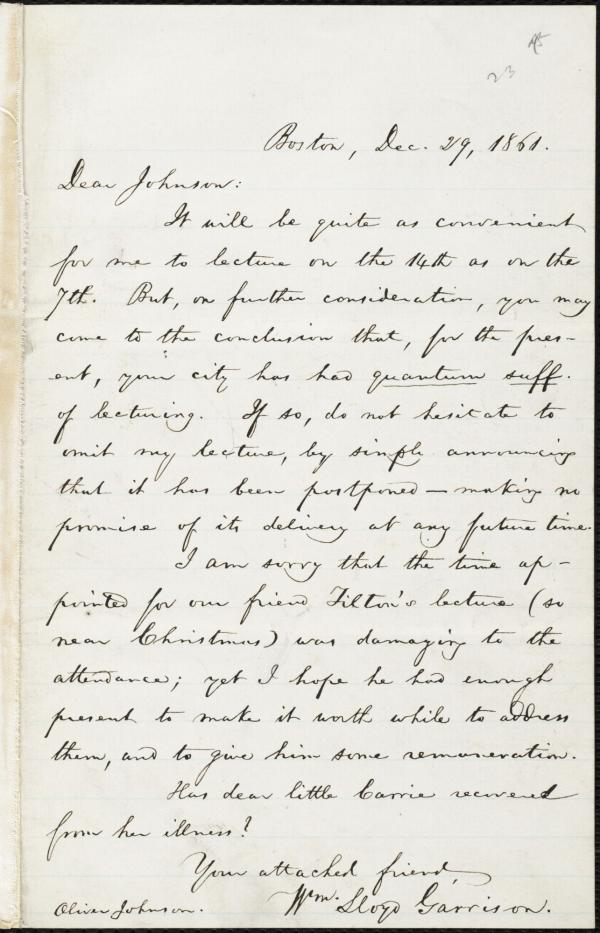 45
23
Boston, Dec. 29, 1861.
Dear Johnson:
It will be quite as convenient
for me to lecture on the 14th as on the
7th. But, on further consideration, you may
come to the conclusion that, for the pres-
ent, your city has had quantum suff.
of lecturing. If so, do not hesitate to
omit my lecture, by simple announcing
that it has been postponed — making no
promise of its delivery at any future time.
I am sorry that the time ap-
pointed for our friend Tilton's lecture (so
near Christmas) was damaging to the
attendance; yet I hope he had enough
present to make it worth while to address
them, and to give him some remuneration.
Has dear little Carrie recovered
from her illness?
Your attached friend,
Wm. Lloyd Garrison.
Oliver Johnson.